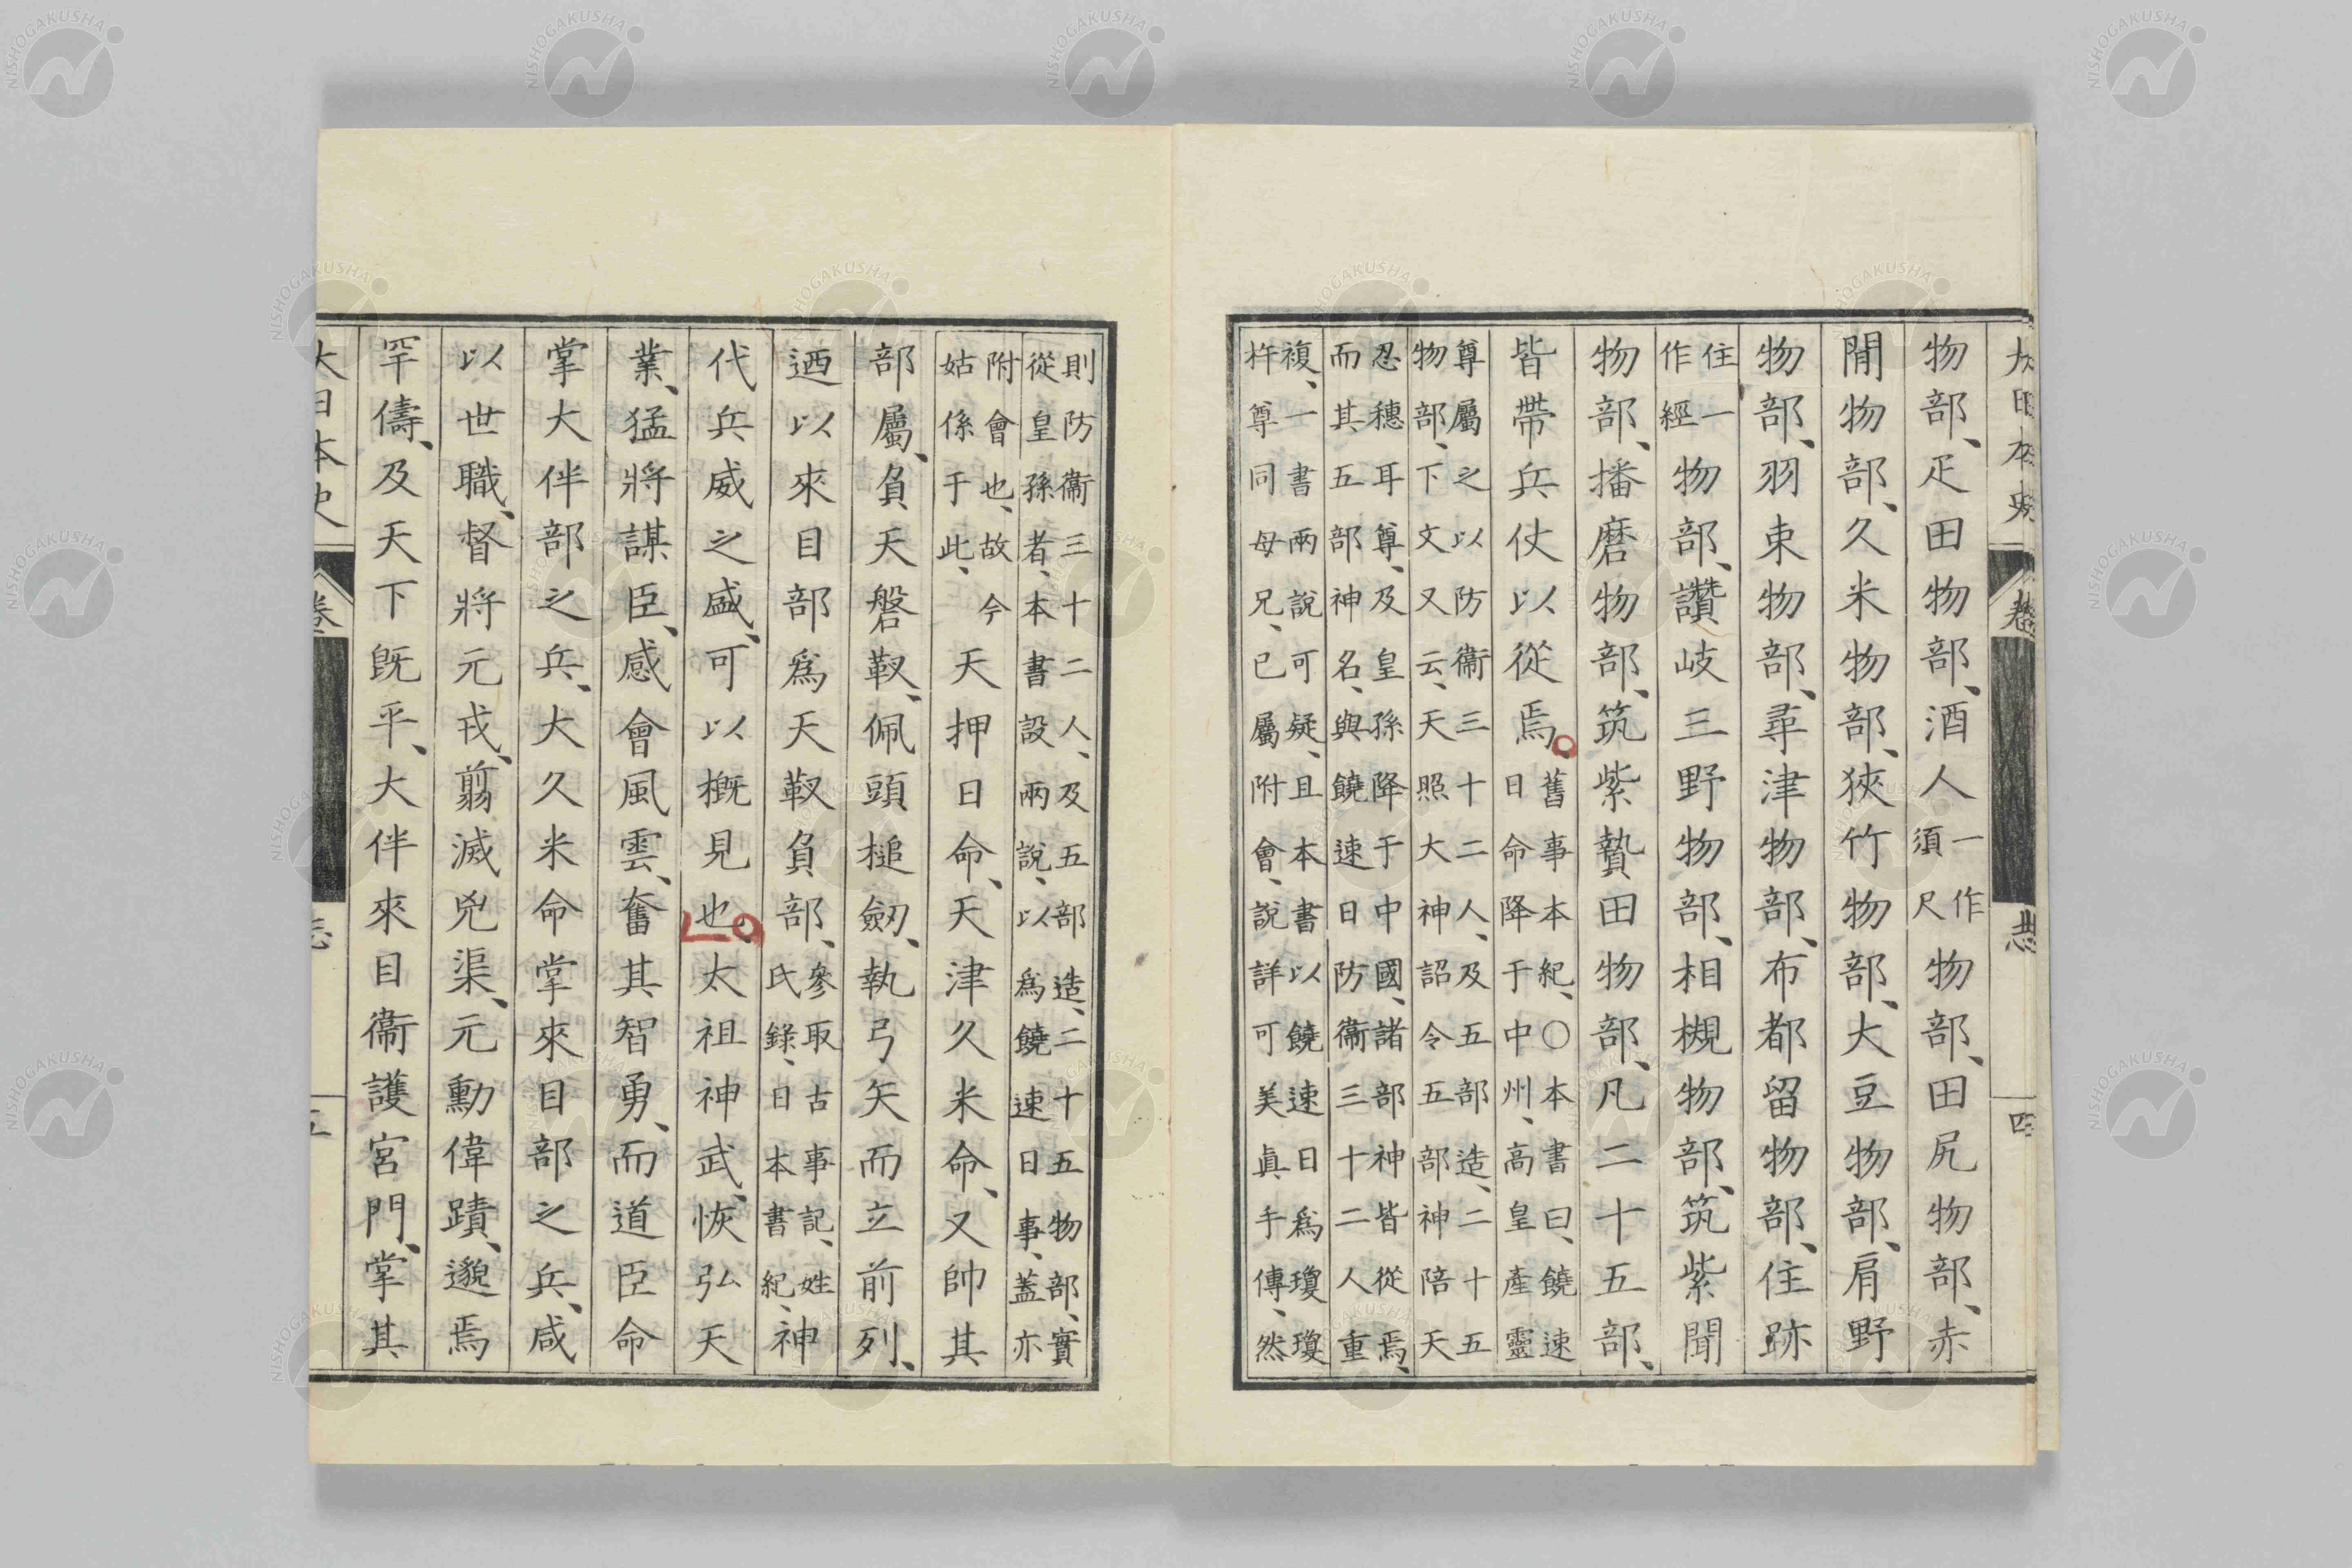 大日本史 卷 志 四
物部、疋田物部、酒人一作須尺物部、田尻物部、赤
間物部、久米物部、狹竹物部、大豆物部、肩野
物部、羽束物部、尋津物部、布都留物部、住跡
住一作經物部、讚岐三野物部、相槻物部、筑紫聞
物部、播磨物部、筑紫贄田物部、凡二十五部、
皆帶兵仗以從焉、舊事本紀、〇本書曰、饒速
日命降于中州、高皇產靈
尊屬之以防衞三十二人、及五部造、二十五
物部、下文又云、天照大神詔令五部神陪天
忍穗耳尊、及皇孫降于中國、諸部神皆從焉、
而其五部神名、與饒速日防衞三十二人重
複、一書兩說可疑、且本書以饒速日爲瓊瓊
杵尊同母兄、已屬附會、說詳可美眞手傳、然
則防衞三十二人、及五部造、二十五物部、實
從皇孫者、本書設兩說、以爲饒速日事、蓋亦
附會也、故今
姑係于此、天押日命、天津久米命、又帥其
部屬、負天磐靫、佩頭槌劒、執弓矢而立前列、
迺以來目部爲天靫負部、參取古事記、姓
氏錄、日本書紀、神
代兵威之盛、可以槪見也、太祖神武、恢弘天
業、猛將謀臣、感會風雲、奮其智勇、而道臣命
掌大伴部之兵、大久米命掌來目部之兵、咸
以世職、督將元戎、翦滅兇渠、元勳偉蹟、邈焉
罕儔、及天下旣平、大伴來目衞護宮門、掌其
大日本史 卷 志 五